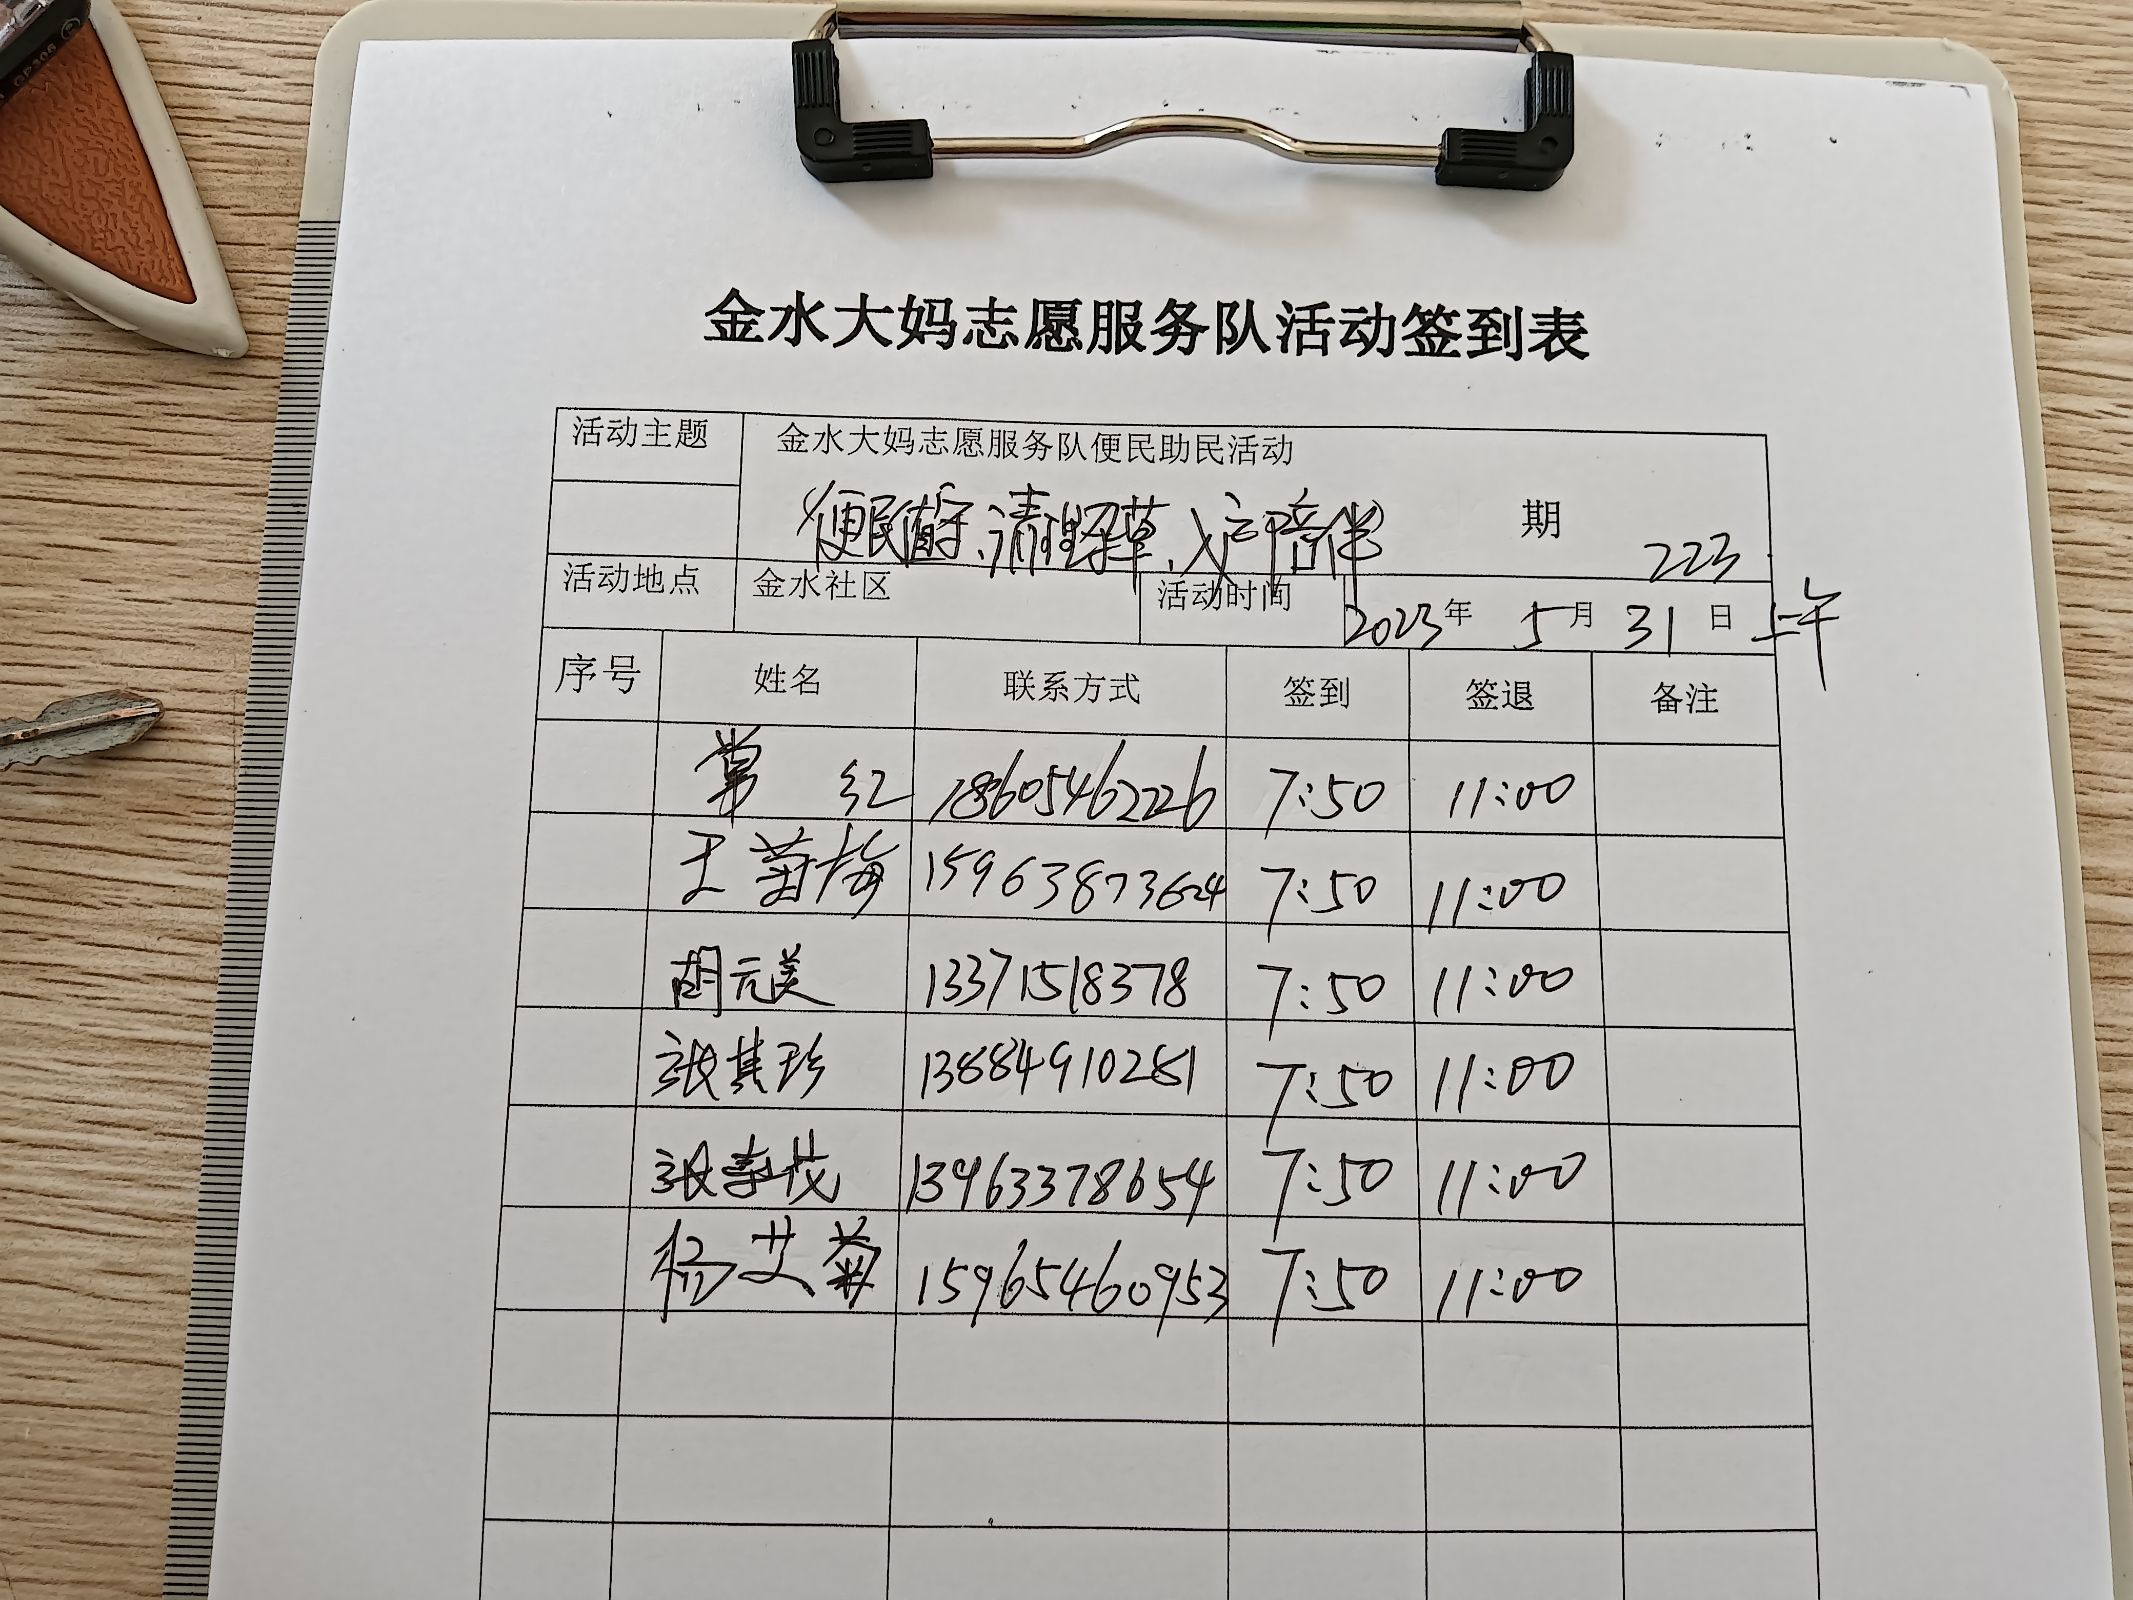 金水大妈志愿服务队活动签到表
活动主题 金水大妈志愿服务队便民助民活动
便民值守、清理杂草、入户陪伴 期 223
活动地点 金水社区 活动时间 2023年 5月 31日 上午
序号 姓名 联系方式 签到 签退 备注
常 红 18605462226 7:50 11:00
王菊梅 15963873624 7:50 11:00
胡元美 13371518378 7:50 11:00
张其珍 13884910281 7:50 11:00
张秀茂 13963378654 7:50 11:00
杨艾菊 15965460953 7:50 11:00